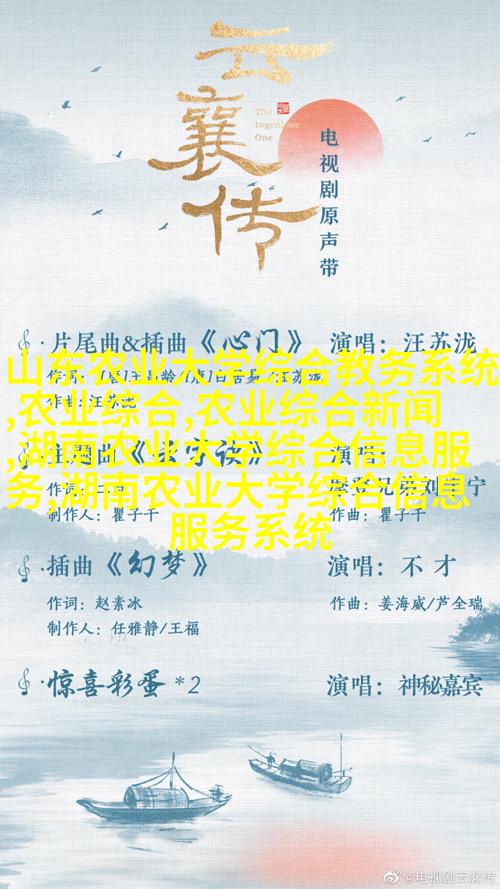 云襄传
The
Ingenious
One
电视剧原声带
片尾曲&插曲《心门》 演唱：汪苏泷
山东农业大学综合教务系统
,农业综合,农业综合新闻
,湖南农业大学综合信息服
务,湖南农业大学综合信息
服务系统
制作人：瞿子千 作曲：瞿子千
插曲《幻梦》 演唱：不才
作词：赵素冰 作曲：姜海威/芦全瑞
制作人：任雅静/王福
惊喜彩蛋*2 演唱：神秘嘉宾
@电视剧云襄传